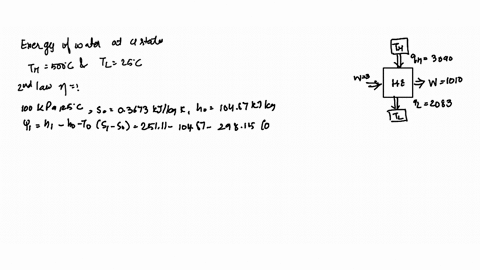 Energy of water at a state
TH = 500°C & TL = 25°C
2nd law η = ?
100 kPa, 25°C, S0 = 0.3673 kJ/kg K, h0 = 104.87 kJ/kg
ψ1 = h1 - h0 - T0 (S1 - S0) = 251.11 - 104.87 - 298.15 (0
TH
qH = 3090
H E
W = 1010
qL = 2083
TL